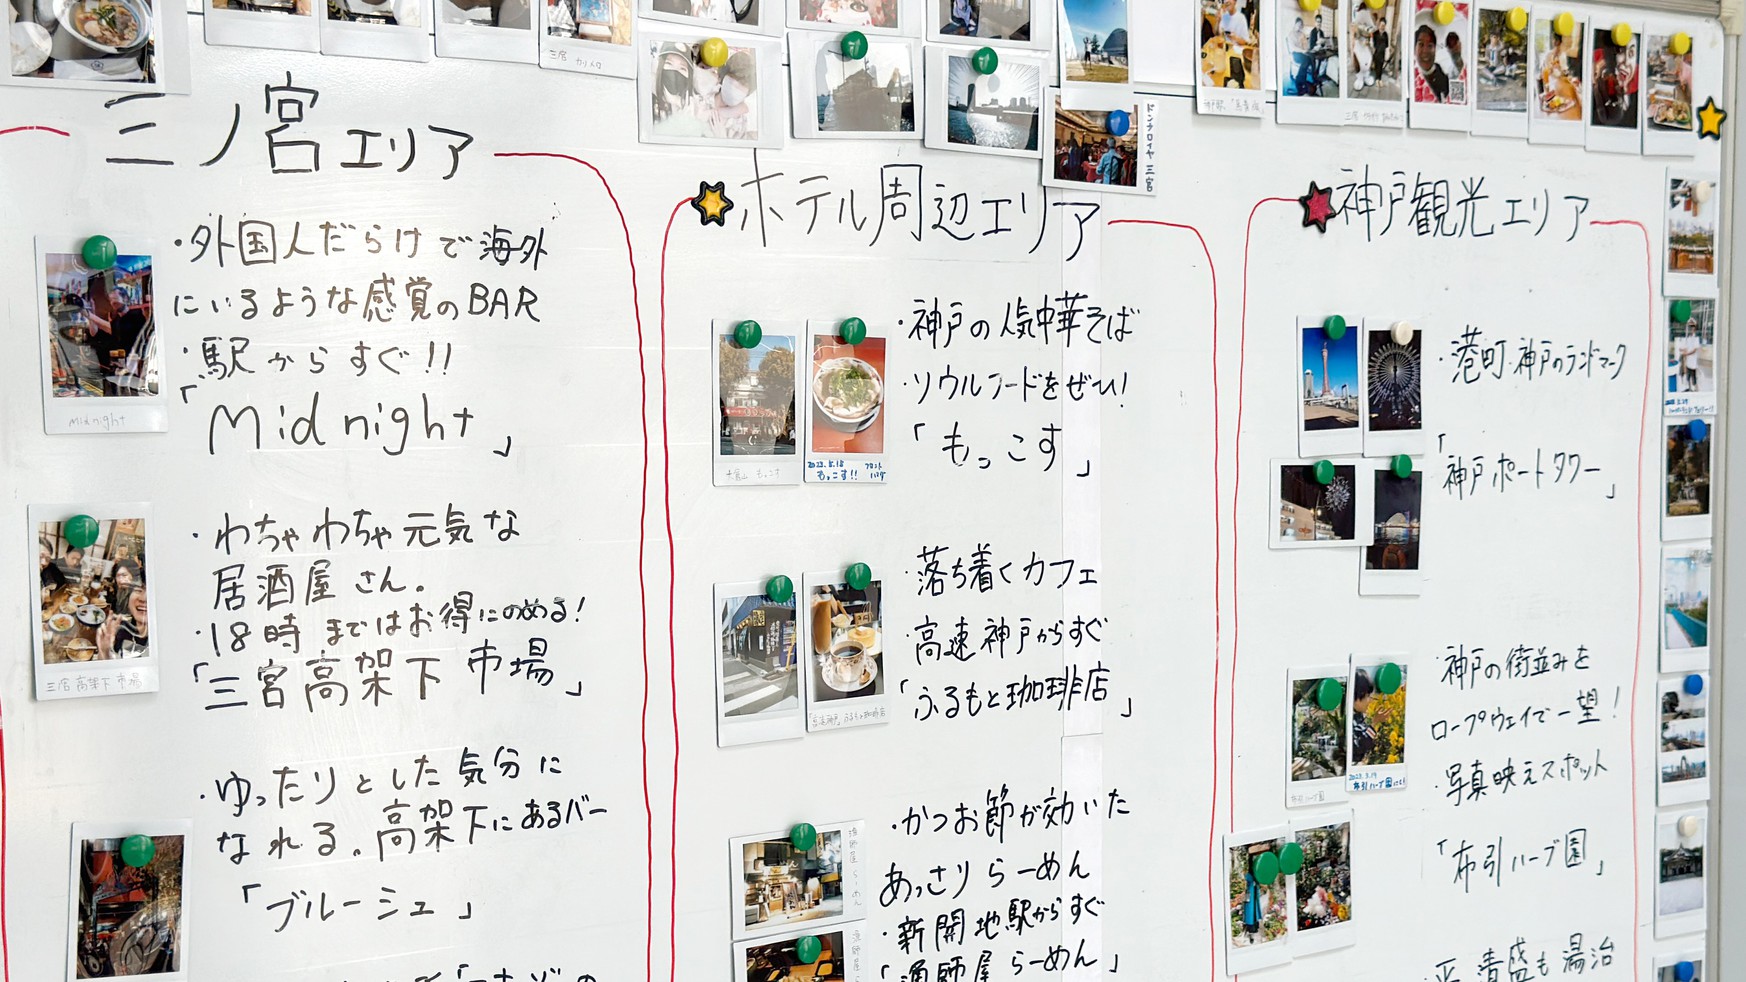 三ノ宮エリア
・外国人だらけで海外
にいるような感覚のBAR
・駅からすぐ!!
「Midnight」
midnight
・わちゃわちゃ元気な
居酒屋さん。
・18時まではお得にのめる!
「三宮高架下市場」
三宮高架下市場
・ゆったりとした気分に
なれる。高架下にあるバー
「ブルーシェ」
ホテル周辺エリア
・神戸の人気中華そば
・ソウルフードをぜひ!
「もっこす」
大倉山 もっこす
もっこす!!
・落ち着くカフェ
・高速神戸からすぐ
「ふるもと珈琲店」
・かつお節が効いた
あっさりらーめん
・新開地駅からすぐ
「漁師屋らーめん」
漁師屋らーめん
神戸観光エリア
・港町・神戸のランドマーク
「神戸ポートタワー」
・神戸の街並みを
ロープウェイで一望!
・写真映えスポット
「布引ハーブ園」
布引ハーブ園
平清盛も湯治